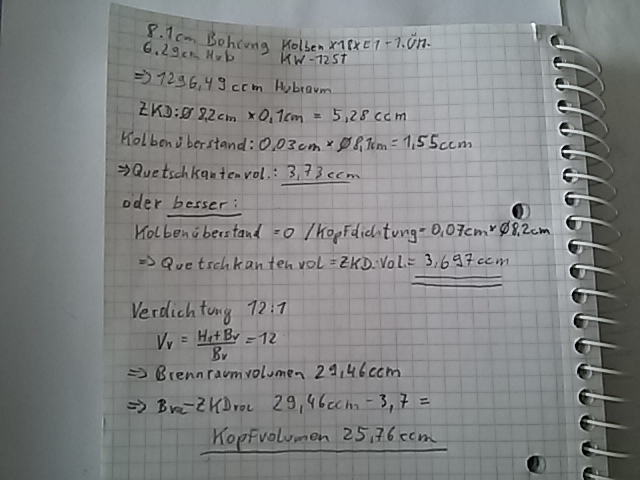 8.1cm Bohrung Kolben x18xE1 - 1.ÜM.
6.29cm Hub KW-12ST
=> 1296,49 ccm Hubraum
ZKD: Ø 8,2cm × 0,1cm = 5,28 ccm
Kolbenüberstand: 0,03cm × Ø8,1cm = 1,55ccm
=> Quetschkantenvol.: 3,73 ccm
oder besser:
Kolbenüberstand = 0 / Kopfdichtung = 0,07cm × Ø8,2cm
=> Quetschkantenvol = ZKD.Vol. = 3,697 ccm
Verdichtung 12:1
Vv = Hv + Bv / Bv = 12
=> Brennraumvolumen 29,46ccm
=> Bvol - ZKDvol 29,46ccm - 3,7 =
Kopfvolumen 25,76 ccm